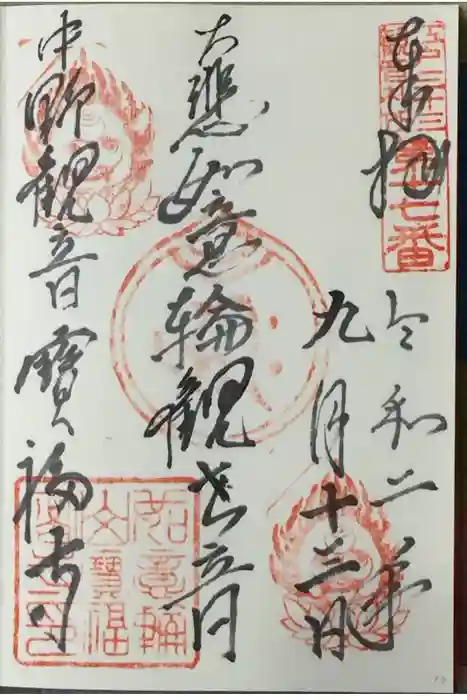 第十七番
奉拝
令和二年
九月十三日
大悲如意輪観世音
中野観音寶福寺
如意輪
山寶福